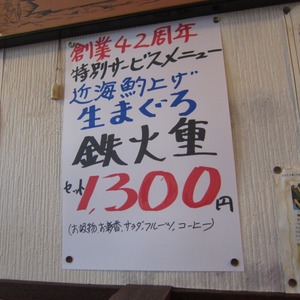 創業42周年
特別サービスメニュー
近海釣上げ
生まぐろ
鉄火重
セット1,300円
(お吸物、お新香、サラダ、フルーツ、コーヒー)